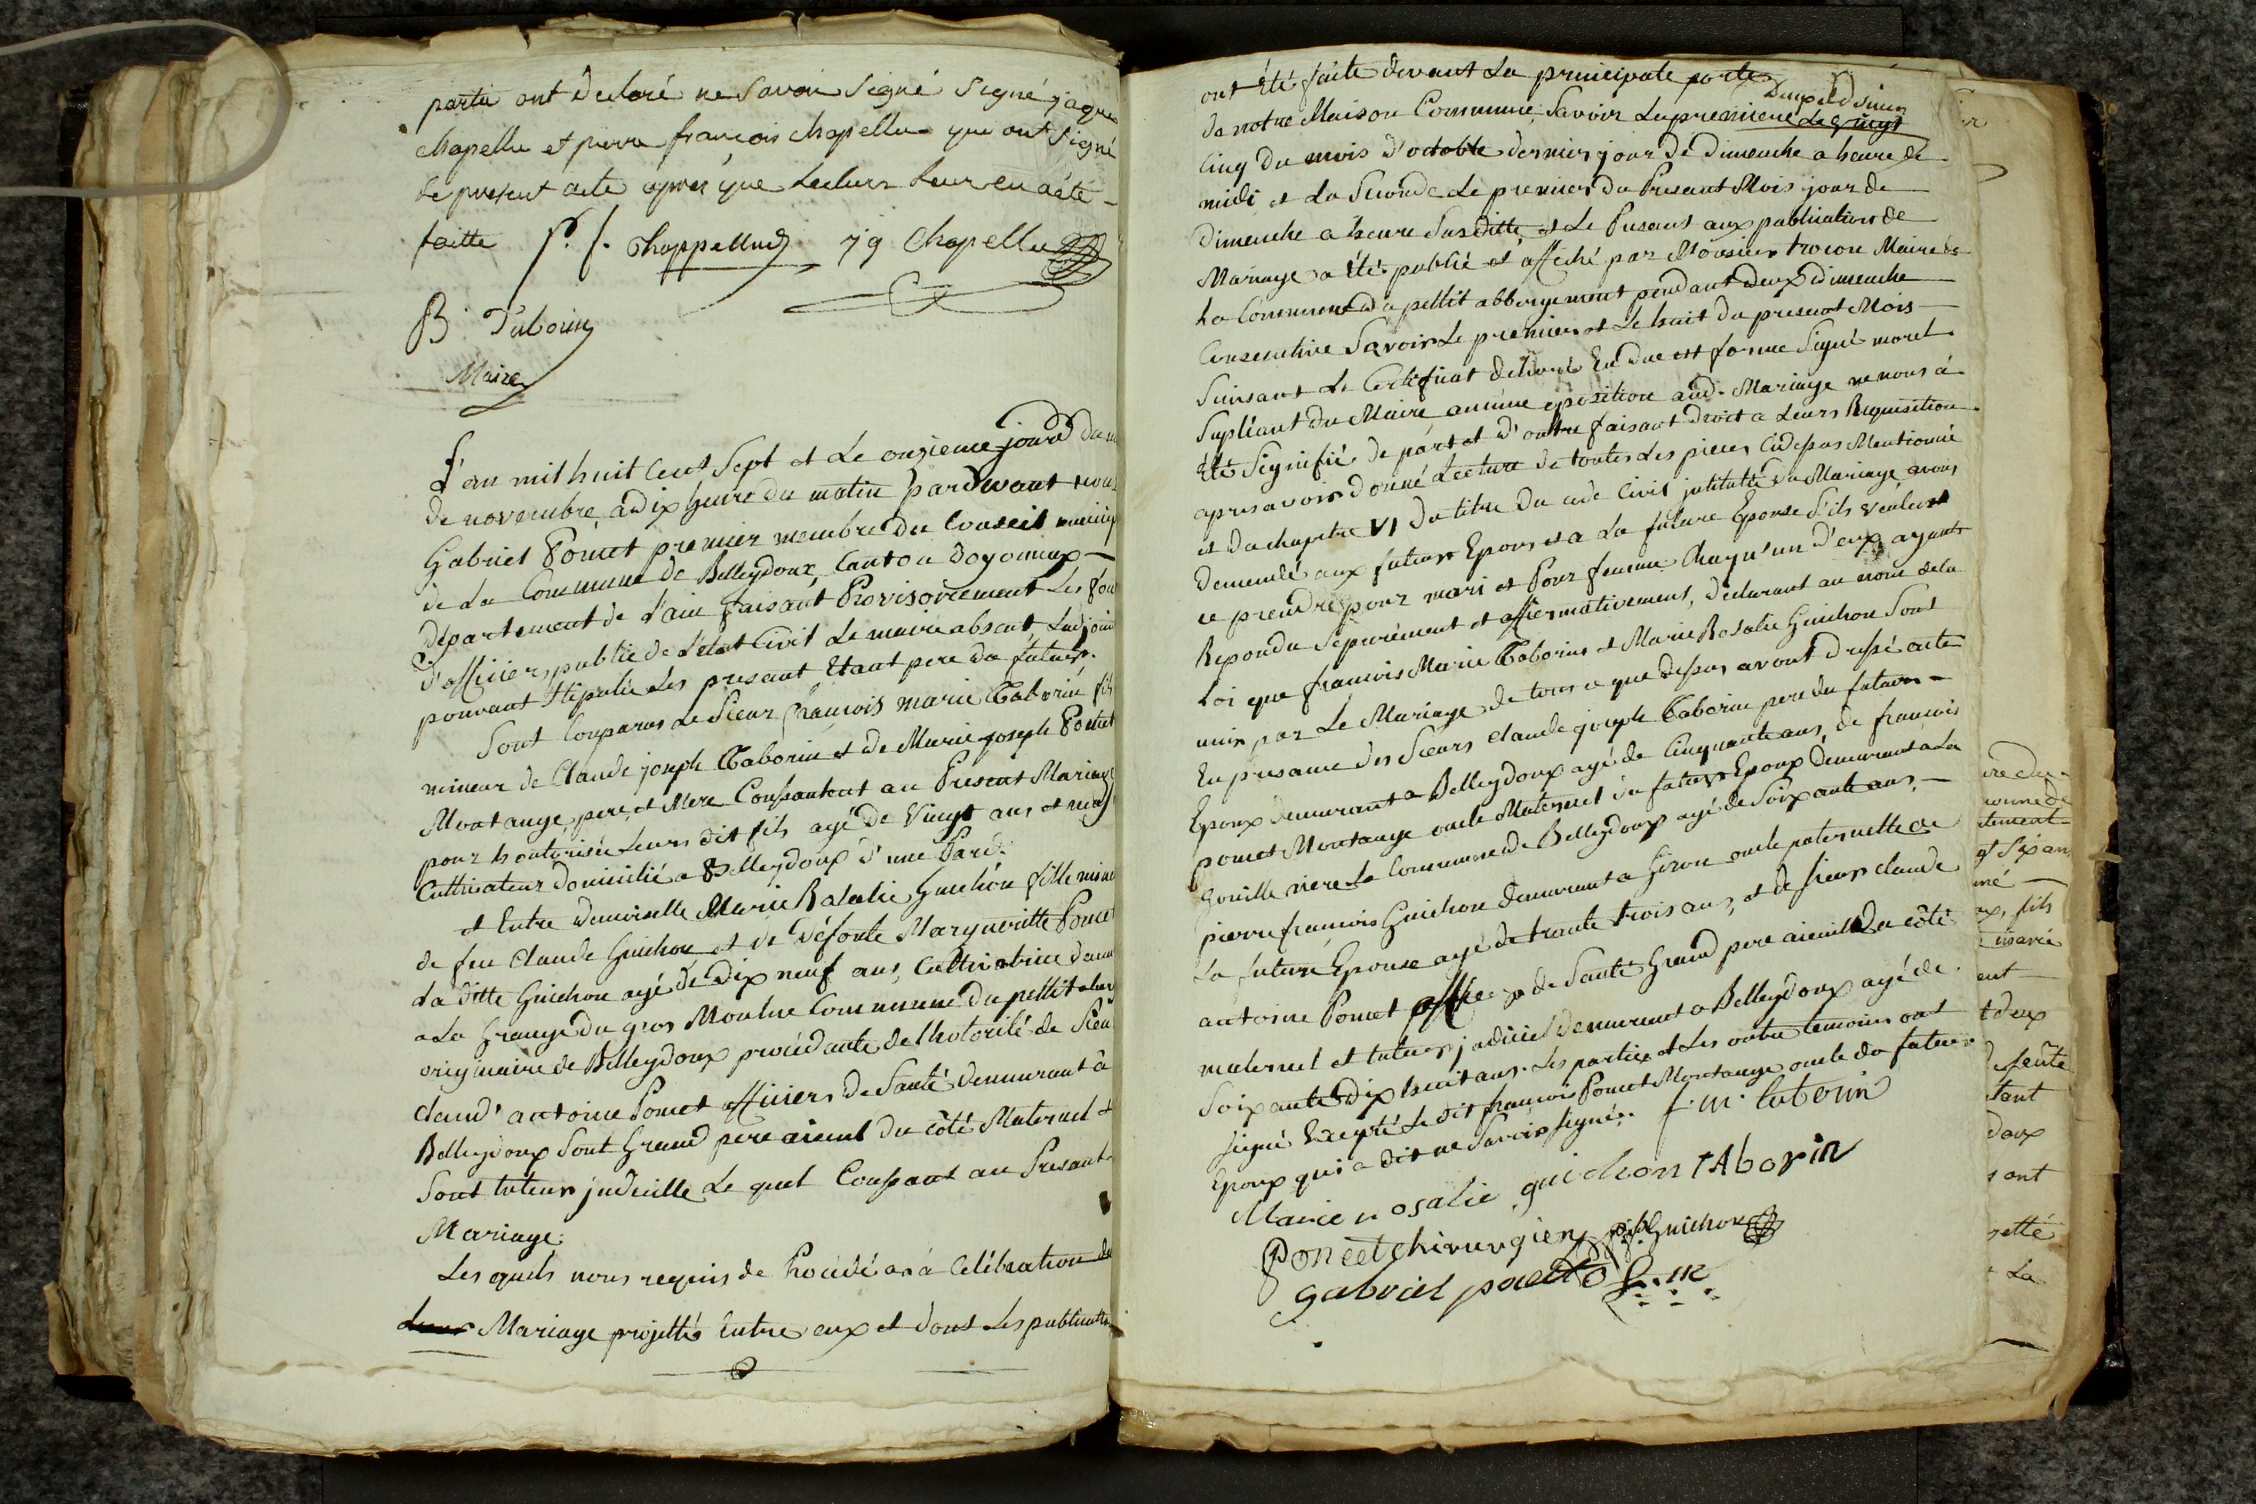 partie ont declaré ne Savoir Signé Signé jaque
Chapellu et pierre françois chapellu que ont Signé
le present acte apres que Lecture Leur en a été
faitte P. f. Chappelluz jq Chapellu
B Tuborin
Maire
L'an mil huit Cent Sept et Le onzieme jour du m
de novembre, a dix heure du matin pardevant nous
Gabriel Poncet premier membre du Conseil municip
de La Commune de Belleydoux Canton doyonnax
département de L'ain faisant Provisoirement Les fon
d'officier public de L'état Civil Le maire absent, Ladjoin
pouvant Stipulé Les presant Etant pere du futur.
Sont Comparus Le Sieur François marie Taborin fils
mineur de Claude joseph Taborin et de Marie joseph Poncet
Montange, pere, et Mere Consantent au Present Mariage
pour h autorisée Leurs dit fils agé de Vingt ans et
Cultivateur domicilié a Belleydoux d'une Pard.
et Entre demoiselle Marie Rosalie Guichon fille mine
de feu Claude Guichon et de Défonte Margueritte Poncet
La ditte Guichon agé de Dix neuf ans, Cultivatrice deme
a La Grange du gros Moulue Commune du pettit aber
originaire de Belleydoux procédante de Lhotorité de Sieu
Claud' antoine Poncet officiers de Santé demeurant à
Belleydoux Sont Grand pere aieul du côté Maternel et
Sont tuteur judicielle Le quel Consant au Presant
Mariage.
Les quels nous requis de Procédé a à Célébration du
Leur Mariage projettés Entre eux et dont Les publicatio
ont Été faite devant La principale porte
de notre Maison Commune, Savoir La premiere Le vingt
Cinq du mois d'octobre dernier jour de Dimanche a heure de
midi et La Seconde Le premier du Present Mois jour de
Dimanche a heure Susditte, et Le Present aux publication de
Mariage a été publié et affiché par Monsieur trocon Maire de
La Commune du pettit abbergement pendant deux dimanche
Consecutive Savoir Le premier et Le huit du present Mois
Suivant Le Certificat délivré En due est forme Signé moret
Supléant du Maire aucune oposition aud. Mariage ne nous à
Été Signifié de part et d'outre faisant droit a Leurs Requisition
apres avoir donné Lecture de toutes Les pieces Cidessus Mentionné
et du chapitre VI du titre du code Civil jntitulé du Mariage avons
demendé aux futur Epoux et a La future Epouse S'ils veulent
ce prendre pour mari et Pour femme Chaqu'un d'eux ayants
Repondu Séparément et affirmativement, déclarant au nom de la
Loi que francois Marie Taborins et Marie Rosalie Guichon Sont
unis par Le Mariage de tous ce que dessus avont dressé acte
En presance des Sieurs claude joseph Taborin pere du futur
Epoux demeurant a Belleydoux agé de Cinquante ans, de françois
poncet Montange oncle Maternel du futur Epoux demeurant a La
Gouille noire La Commune de Belleydoux agé de Soixante ans,
pierre françois Guichon demeurant a Giron oncle paternelle de
La future Epouse agé de trante trois ans, et de Sieur claude
antoine Poncet officier de Santé Grand pere aieul du côté
maternel et tuteur judiciel demeurant a Belleydoux agé de
Soixante Dix huit ans. Les parties et Les outre temoins ont
signé Excepté Le dit françois Poncet Montange oncle du futur
Epoux qui a dit ne Savoir signé. f. m. taborin
Marie rosalie guichon tAborin
Poncet chirurgien p. f. Guichon
Gabriel poncet P. m.